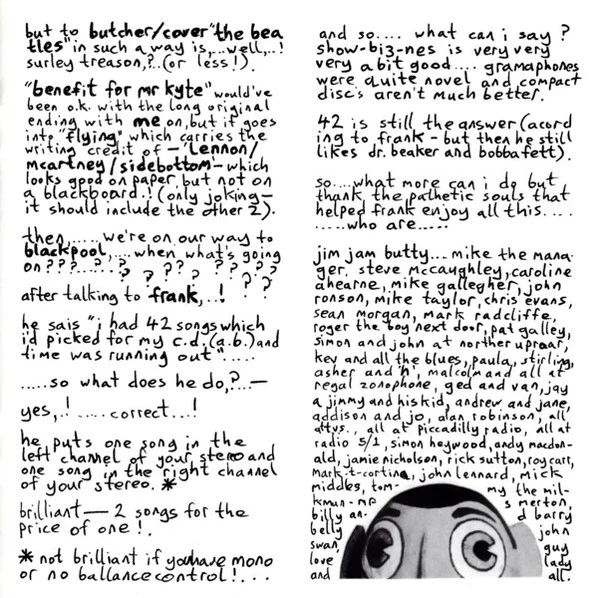 but to butcher/cover "the bea
tles" in such a way is,...well,..!
surley treason,?..(or less!).
"benefit for mr kyte" would've
been o.k. with the long original
ending with me on, but it goes
into "flying" which carries the
writing credit of - 'lennon/
mccartney/sidebottom - which
looks good on paper, but not on
a blackboard.! (only joking-
it should include the other 2).
then,.....we're on our way to
blackpool,....when what's going
on???....?..???????????
after talking to frank,..!
he sais "i had 42 songs which
i'd picked for my c.d.(a.b.) and
time was running out".....
.....so what does he do,?..—
yes,.! .....correct...!
he puts one song in the
left channel of your stereo and
one song in the right channel
of your stereo. *
brilliant— 2 songs for the
price of one!.
* not brilliant if you have mono
or no ballance control!...
and so.... what can i say?
show-bi3-nes is very very
very a bit good.... gramaphones
were quite novel and compact
disc's aren't much better.
42 is still the answer (acord
ing to frank - but then he still
likes dr. beaker and bobba fett).
so....what more can i do but
thank the pathetic souls that
helped frank enjoy all this....
.....who are.....
jim jam butty... mike the mana-
ger, steve mccaughley, caroline
ahearne, mike gallegher, john
ronson, mike taylor, chris evans,
sean morgan, mark radcliffe,
roger the boy next door, pat galley,
simon and john at norther uproar,
key and all the blues, paula, stirling,
asher and 'h', malcolm and all at
regal zonophone, ged and van, jay
a jimmy and his kid, andrew and jane,
addison and jo, alan robinson, all
at piccadilly radio, all at
radio 5/1, simon heywood, andy macdon-
ald, jamie nicholson, rick sutton, roy carr,
mark-t-cortina, john lennard, mick
middles, tom- my the mil-
kman - mr s merton,
billy an- d barry
belly john
swan, guy
love lady
and all.